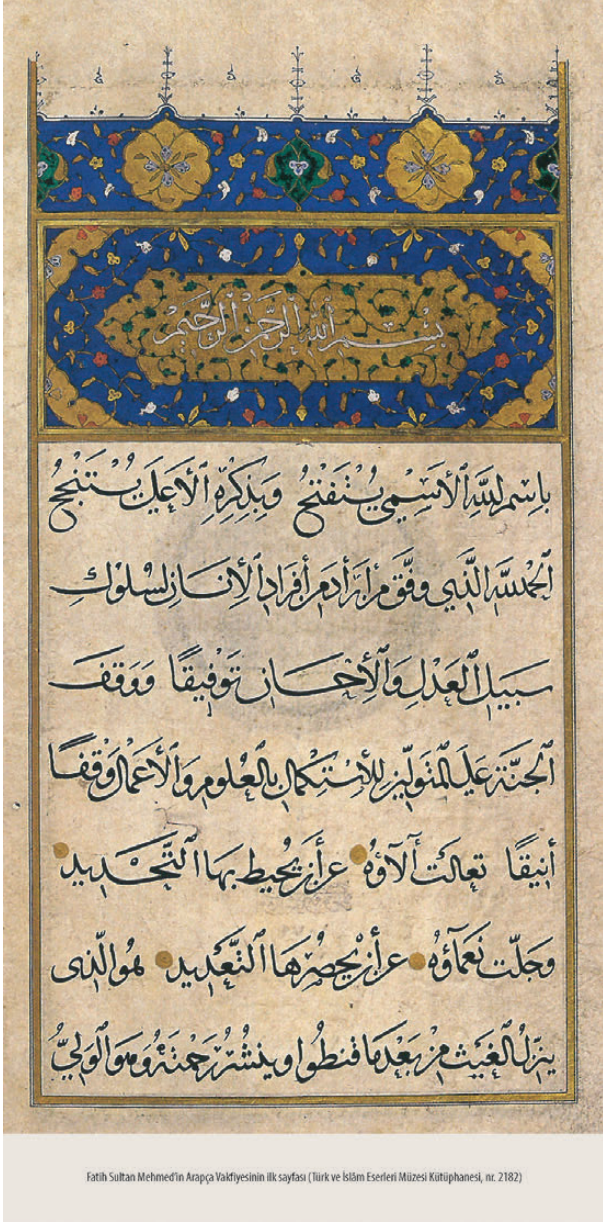 بِسْمِ اللهِ الرَّحْمٰنِ الرَّحِيْمِ
بِاسْمِ اللّٰهِ الْأَسْمٰى يُسْتَفْتَحُ وَبِذِكْرِهِ الْأَعْلٰى يُسْتَنْجَحُ
اَلْحَمْدُ لِلّٰهِ الَّذِي وَفَّقَ مَنْ أَرَادَ مِنْ أَفْرَادِ الْإِنْسَانِ لِسُلُوكِ
سَبِيلِ الْعَدْلِ وَالْإِحْسَانِ تَوْفِيقًا وَوَقَفَ
الْجَنَّةَ عَلَى الْمُتَوَلِّينَ لِلْاِسْتِكْمَالِ بِالْعُلُومِ وَالْأَعْمَالِ وَقْفًا
أَنِيقًا تَعَالَتْ آلَاؤُهُ عَنْ أَنْ يُحِيطَ بِهَا التَّحْدِيدُ
وَجَلَّتْ نَعْمَآؤُهُ عَنْ أَنْ يَحْصُرَهَا التَّعْدِيدُ هُوَ الَّذِى
يُنَزِّلُ الْغَيْثَ مِنْ بَعْدِ مَا قَنَطُوا وَيَنْشُرُ رَحْمَتَهُ وَهُوَ الْوَلِيُّ
Fatih Sultan Mehmed'in Arapça Vakfiyesinin ilk sayfası (Türk ve İslâm Eserleri Müzesi Kütüphanesi, nr. 2182)